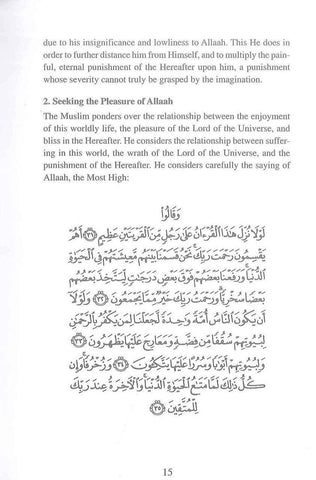 due to his insignificance and lowliness to Allaah. This He does in
order to further distance him from Himself, and to multiply the pain-
ful, eternal punishment of the Hereafter upon him, a punishment
whose severity cannot truly be grasped by the imagination.
2. Seeking the Pleasure of Allaah
The Muslim ponders over the relationship between the enjoyment
of this worldly life, the pleasure of the Lord of the Universe, and
bliss in the Hereafter. He considers the relationship between suffer-
ing in this world, the wrath of the Lord of the Universe, and the
punishment of the Hereafter. He considers carefully the saying of
Allaah, the Most High:
وَقَالُوا۟
لَوْلَا نُزِّلَ هَٰذَا ٱلْقُرْءَانُ عَلَىٰ رَجُلٍ مِّنَ ٱلْقَرْيَتَيْنِ عَظِيمٍ ﴿٣١﴾ أَهُمْ
يَقْسِمُونَ رَحْمَتَ رَبِّكَ نَحْنُ قَسَمْنَا بَيْنَهُم مَّعِيشَتَهُمْ فِى ٱلْحَيَوٰةِ
ٱلدُّنْيَا وَرَفَعْنَا بَعْضَهُمْ فَوْقَ بَعْضٍ دَرَجَٰتٍ لِّيَتَّخِذَ بَعْضُهُم
بَعْضًا سُخْرِيًّا وَرَحْمَتُ رَبِّكَ خَيْرٌ مِّمَّا يَجْمَعُونَ ﴿٣٢﴾ وَلَوْلَآ
أَن يَكُونَ ٱلنَّاسُ أُمَّةً وَٰحِدَةً لَّجَعَلْنَا لِمَن يَكْفُرُ بِٱلرَّحْمَٰنِ
لِبُيُوتِهِمْ سُقُفًا مِّن فِضَّةٍ وَمَعَارِجَ عَلَيْهَا يَظْهَرُونَ ﴿٣٣﴾
وَلِبُيُوتِهِمْ أَبْوَٰبًا وَسُرُرًا عَلَيْهَا يَتَّكِـُٔونَ ﴿٣٤﴾ وَزُخْرُفًا وَإِن
كُلُّ ذَٰلِكَ لَمَّا مَتَٰعُ ٱلْحَيَوٰةِ ٱلدُّنْيَا وَٱلْءَاخِرَةُ عِندَ رَبِّكَ
لِلْمُتَّقِينَ ﴿٣٥﴾
15